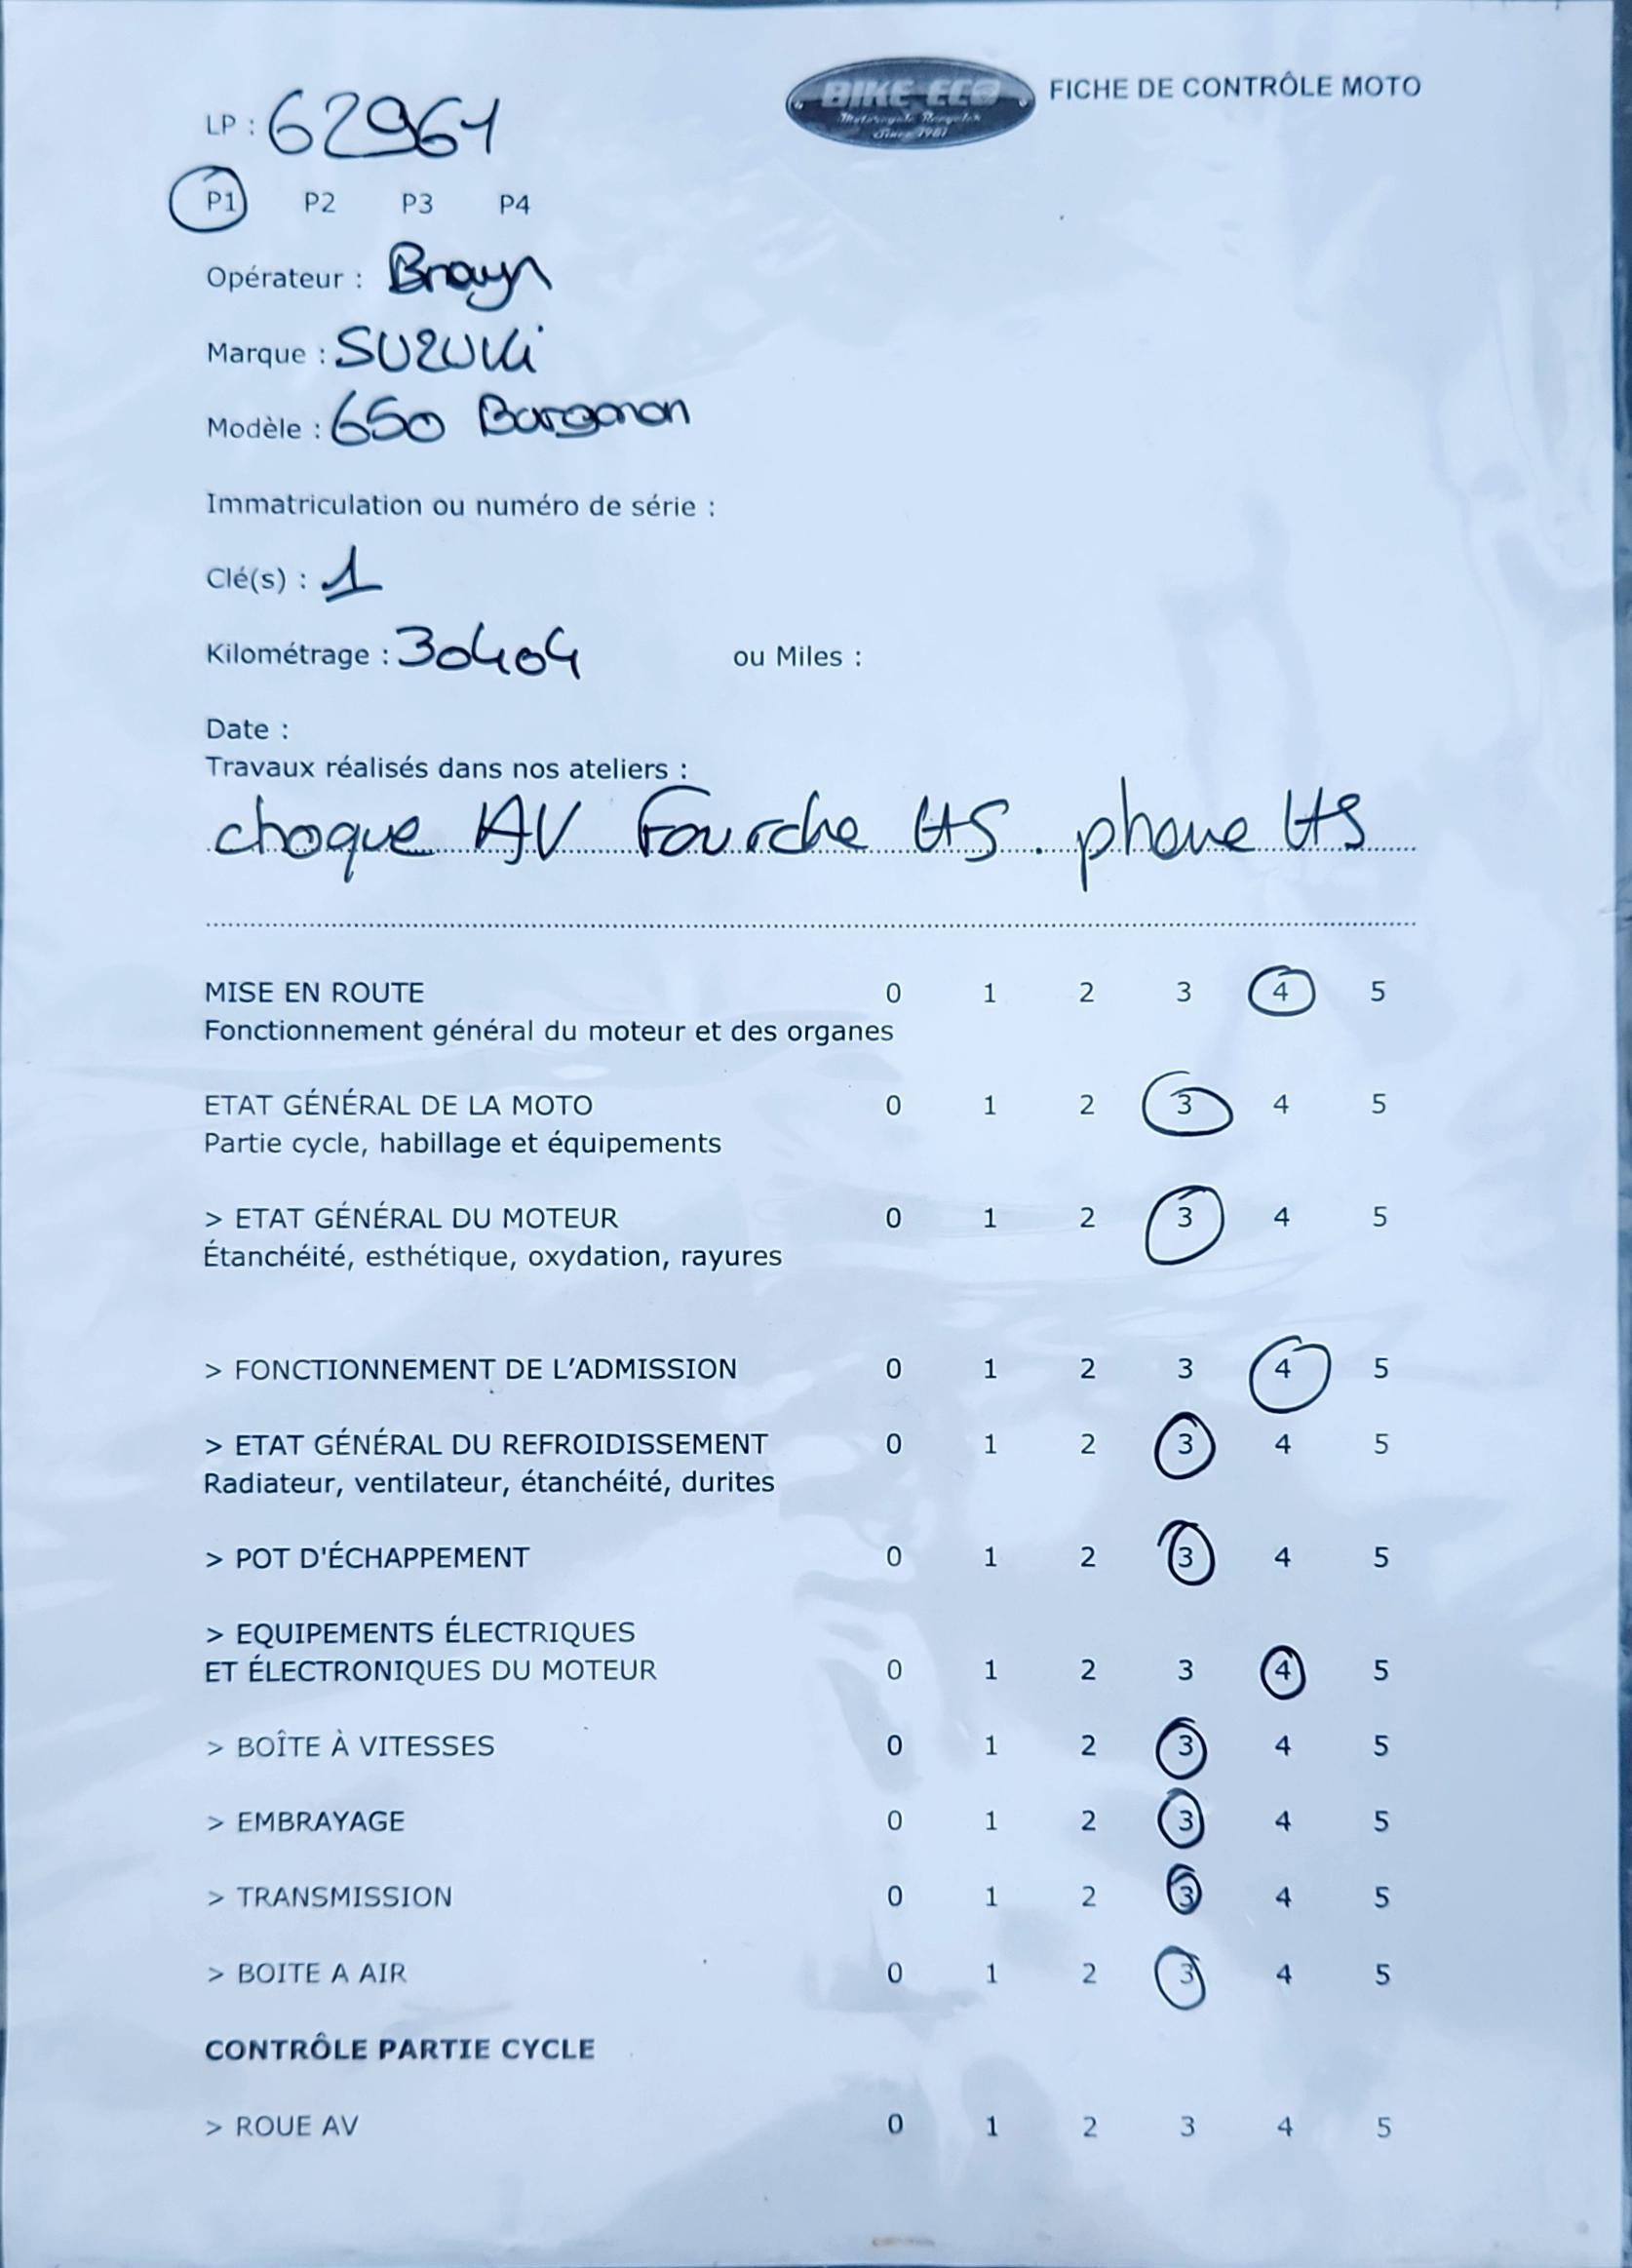 BIKE ECO
Motorcycle Recycler
Since 1981
FICHE DE CONTRÔLE MOTO
LP : 62961
P1 P2 P3 P4
Opérateur : Brayn
Marque : SUZUKi
Modèle : 650 Burgman
Immatriculation ou numéro de série :
Clé(s) : 1
Kilométrage : 30404 ou Miles :
Date :
Travaux réalisés dans nos ateliers :
choque AV Fourche HS. phare HS
MISE EN ROUTE 0 1 2 3 4 5
Fonctionnement général du moteur et des organes
ETAT GÉNÉRAL DE LA MOTO 0 1 2 3 4 5
Partie cycle, habillage et équipements
> ETAT GÉNÉRAL DU MOTEUR 0 1 2 3 4 5
Étanchéité, esthétique, oxydation, rayures
> FONCTIONNEMENT DE L'ADMISSION 0 1 2 3 4 5
> ETAT GÉNÉRAL DU REFROIDISSEMENT 0 1 2 3 4 5
Radiateur, ventilateur, étanchéité, durites
> POT D'ÉCHAPPEMENT 0 1 2 3 4 5
> EQUIPEMENTS ÉLECTRIQUES
ET ÉLECTRONIQUES DU MOTEUR 0 1 2 3 4 5
> BOÎTE À VITESSES 0 1 2 3 4 5
> EMBRAYAGE 0 1 2 3 4 5
> TRANSMISSION 0 1 2 3 4 5
> BOITE A AIR 0 1 2 3 4 5
CONTRÔLE PARTIE CYCLE
> ROUE AV 0 1 2 3 4 5